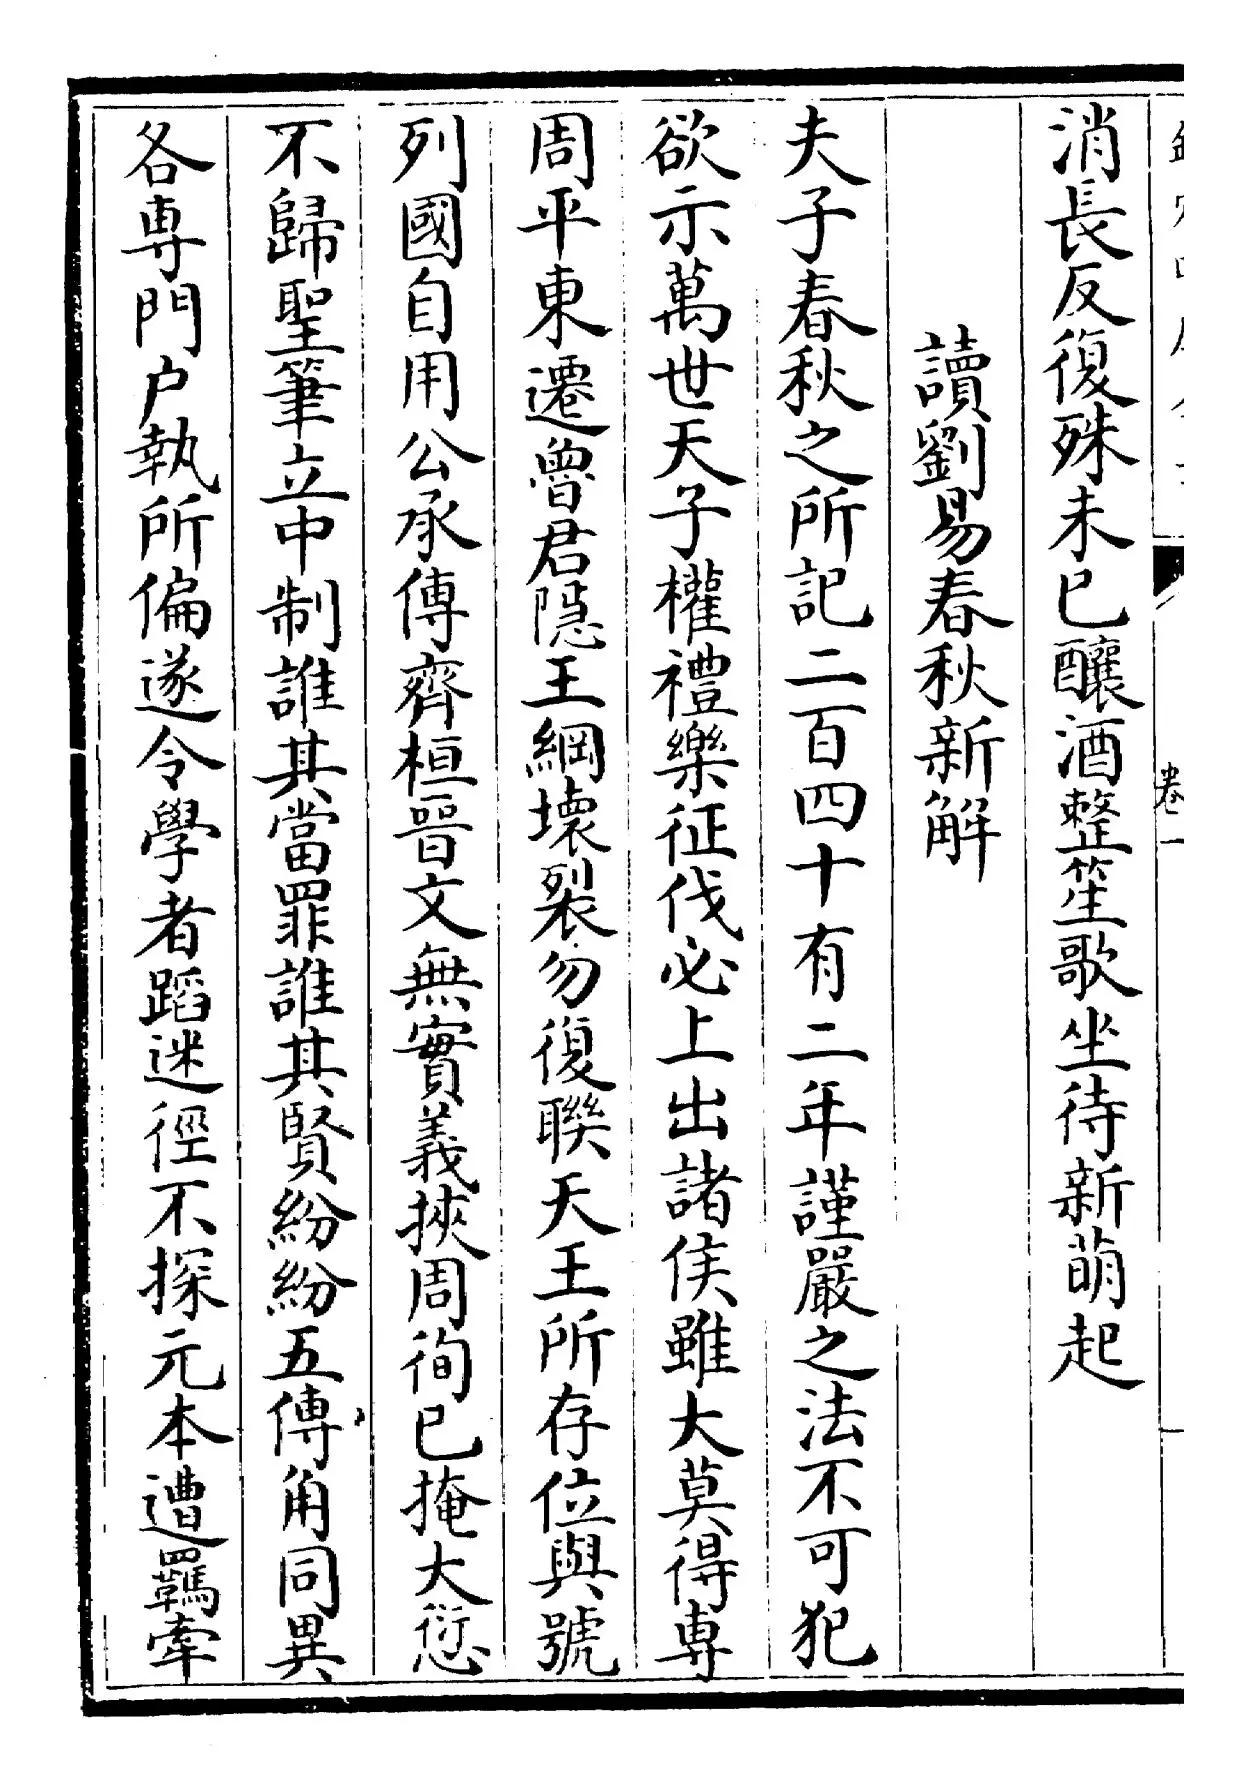 消長反復殊未已釀酒整笙歌坐待新萌起
讀劉易春秋新解
夫子春秋之所記二百四十有二年謹嚴之法不可犯
欲示萬世天子權禮樂征伐必上出諸侯雖大莫得専
周平東遷魯君隱王綱壞裂勿復聯天王所存位與號
列國自用公承傳齊桓晉文無實義挾周徇已掩大愆
不歸聖筆立中制誰其當罪誰其賢紛紛五傳角同異
各専門户執所偏遂令學者蹈迷徑不探元本遭羈牽
卷一